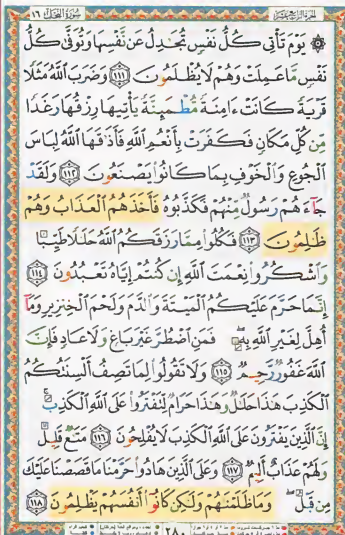 سُورَةُ النَّحْلِ ١٦
الجزء الرابع عشر
۞ يَوْمَ تَأْتِي كُلُّ نَفْسٍ تُجَٰدِلُ عَن نَّفْسِهَا وَتُوَفَّىٰ كُلُّ
نَفْسٍ مَّا عَمِلَتْ وَهُمْ لَا يُظْلَمُونَ ١١١ وَضَرَبَ ٱللَّهُ مَثَلًا
قَرْيَةً كَانَتْ ءَامِنَةً مُّطْمَئِنَّةً يَأْتِيهَا رِزْقُهَا رَغَدًا
مِّن كُلِّ مَكَانٍ فَكَفَرَتْ بِأَنْعُمِ ٱللَّهِ فَأَذَٰقَهَا ٱللَّهُ لِبَاسَ
ٱلْجُوعِ وَٱلْخَوْفِ بِمَا كَانُوا۟ يَصْنَعُونَ ١١٢ وَلَقَدْ
جَآءَهُمْ رَسُولٌ مِّنْهُمْ فَكَذَّبُوهُ فَأَخَذَهُمُ ٱلْعَذَابُ وَهُمْ
ظَٰلِمُونَ ١١٣ فَكُلُوا۟ مِمَّا رَزَقَكُمُ ٱللَّهُ حَلَٰلًا طَيِّبًا
وَٱشْكُرُوا۟ نِعْمَتَ ٱللَّهِ إِن كُنتُمْ إِيَّاهُ تَعْبُدُونَ ١١٤
إِنَّمَا حَرَّمَ عَلَيْكُمُ ٱلْمَيْتَةَ وَٱلدَّمَ وَلَحْمَ ٱلْخِنزِيرِ وَمَآ
أُهِلَّ لِغَيْرِ ٱللَّهِ بِهِۦ ۖ فَمَنِ ٱضْطُرَّ غَيْرَ بَاغٍ وَلَا عَادٍ فَإِنَّ
ٱللَّهَ غَفُورٌ رَّحِيمٌ ١١٥ وَلَا تَقُولُوا۟ لِمَا تَصِفُ أَلْسِنَتُكُمُ
ٱلْكَذِبَ هَٰذَا حَلَٰلٌ وَهَٰذَا حَرَامٌ لِّتَفْتَرُوا۟ عَلَى ٱللَّهِ ٱلْكَذِبَ ۚ
إِنَّ ٱلَّذِينَ يَفْتَرُونَ عَلَى ٱللَّهِ ٱلْكَذِبَ لَا يُفْلِحُونَ ١١٦ مَتَٰعٌ قَلِيلٌ
وَلَهُمْ عَذَابٌ أَلِيمٌ ١١٧ وَعَلَى ٱلَّذِينَ هَادُوا۟ حَرَّمْنَا مَا قَصَصْنَا عَلَيْكَ
مِن قَبْلُ ۖ وَمَا ظَلَمْنَٰهُمْ وَلَٰكِن كَانُوٓا۟ أَنفُسَهُمْ يَظْلِمُونَ ١١٨
٢٨٠